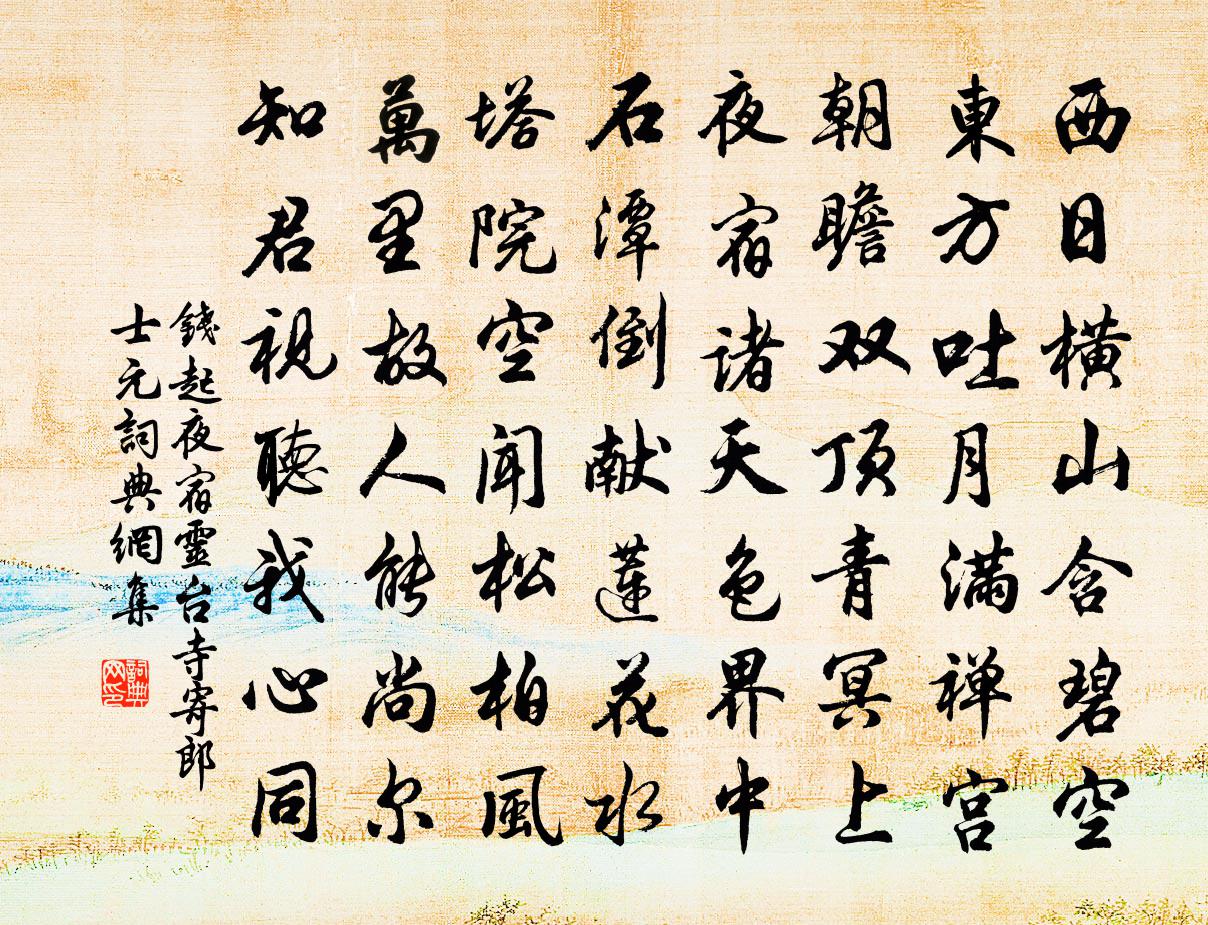 西日橫山含碧空
東方吐月满禅宫
朝瞻双顶青冥上
夜宿诸天色界中
石潭倒献莲花水
塔院空闻松柏風
萬里故人能尚尔
知君視聽我心同
錢起夜宿靈台寺寄郎
士元詞典網集
詞典
网印